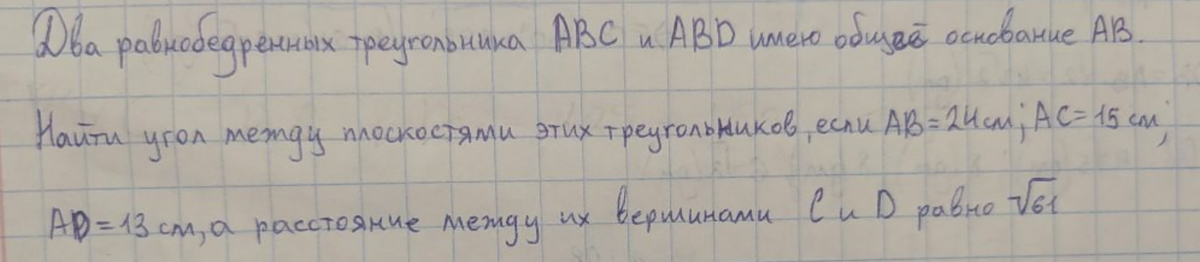 Два равнобедренных треугольника ABC и ABD имею общее основание AB.
Найти угол между плоскостями этих треугольников, если AB=24см; AC=15 см;
AD=13 см, а расстояние между их вершинами C и D равно √61